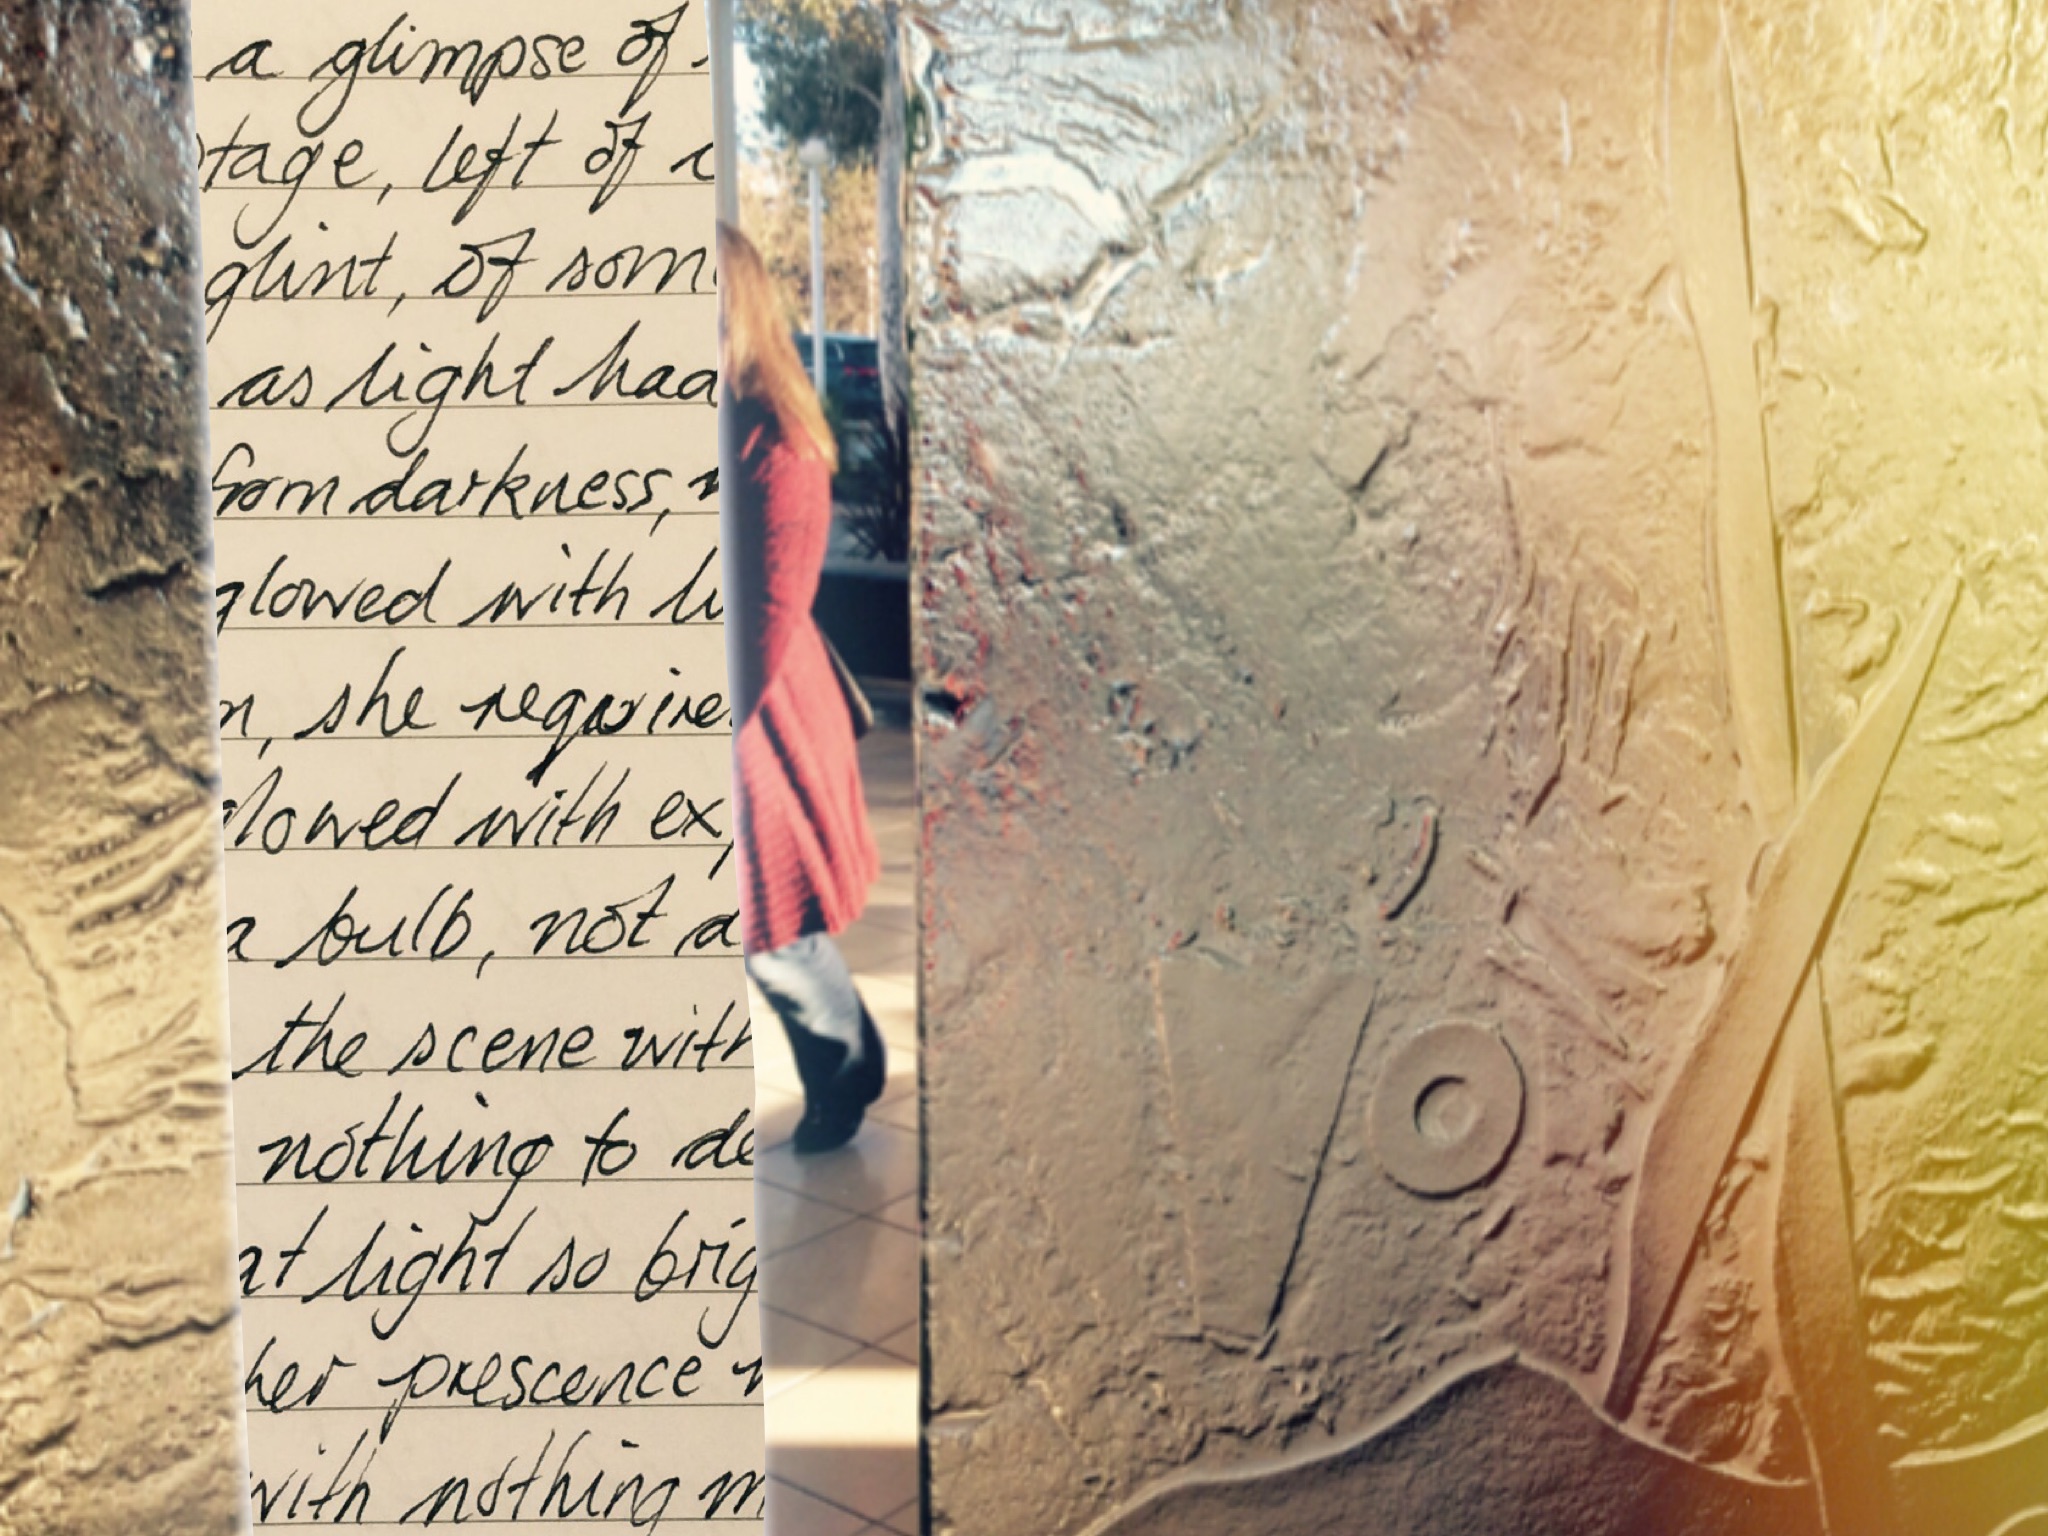 a glimpse of
tage, left of
glint, of som
as light had
from darkness,
glowed with
, she require
lowed with ex
a bulb, not a
the scene with
nothing to de
at light so brig
her prescence
with nothing m